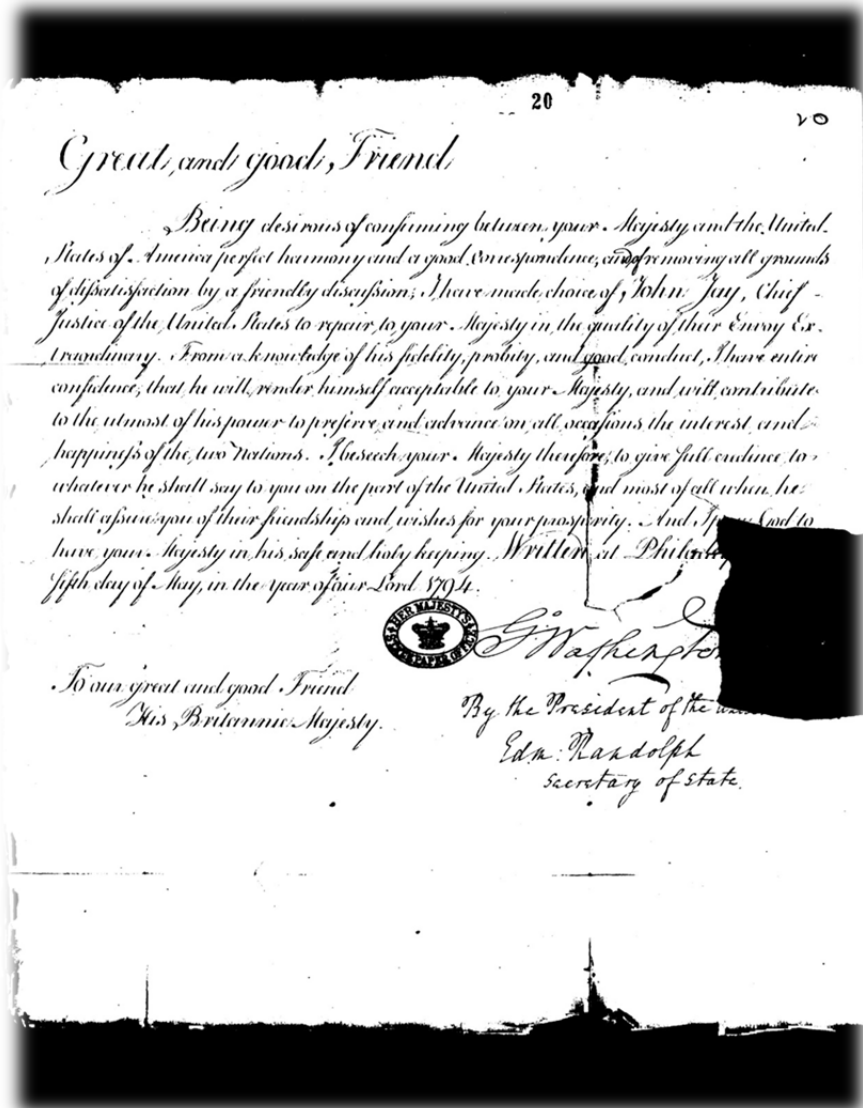 20
20
Great and good Friend
Being desirous of confirming between your Majesty and the United
States of America perfect harmony and a good correspondence, and of removing all grounds
of dissatisfaction by a friendly discussion; I have made choice of John Jay, Chief
Justice of the United States to repair to your Majesty in the quality of their Envoy Ex-
traordinary. From a knowledge of his fidelity, probity, and good conduct, I have entire
confidence, that he will render himself acceptable to your Majesty, and will contribute
to the utmost of his power to preserve and advance on all occasions the interest and
happiness of the two Nations. I beseech your Majesty therefore, to give full credence to
whatever he shall say to you on the part of the United States, and most of all when he
shall assure you of their friendship and wishes for your prosperity. And I pray God to
have your Majesty in his safe and holy keeping. Written at
fifth day of May, in the year of our Lord 1794.
HER MAJESTY'S
STATE PAPER OFFICE
G. Washington
To our great and good Friend
His Britannic Majesty.
By the President of the
Edm: Randolph
Secretary of State.